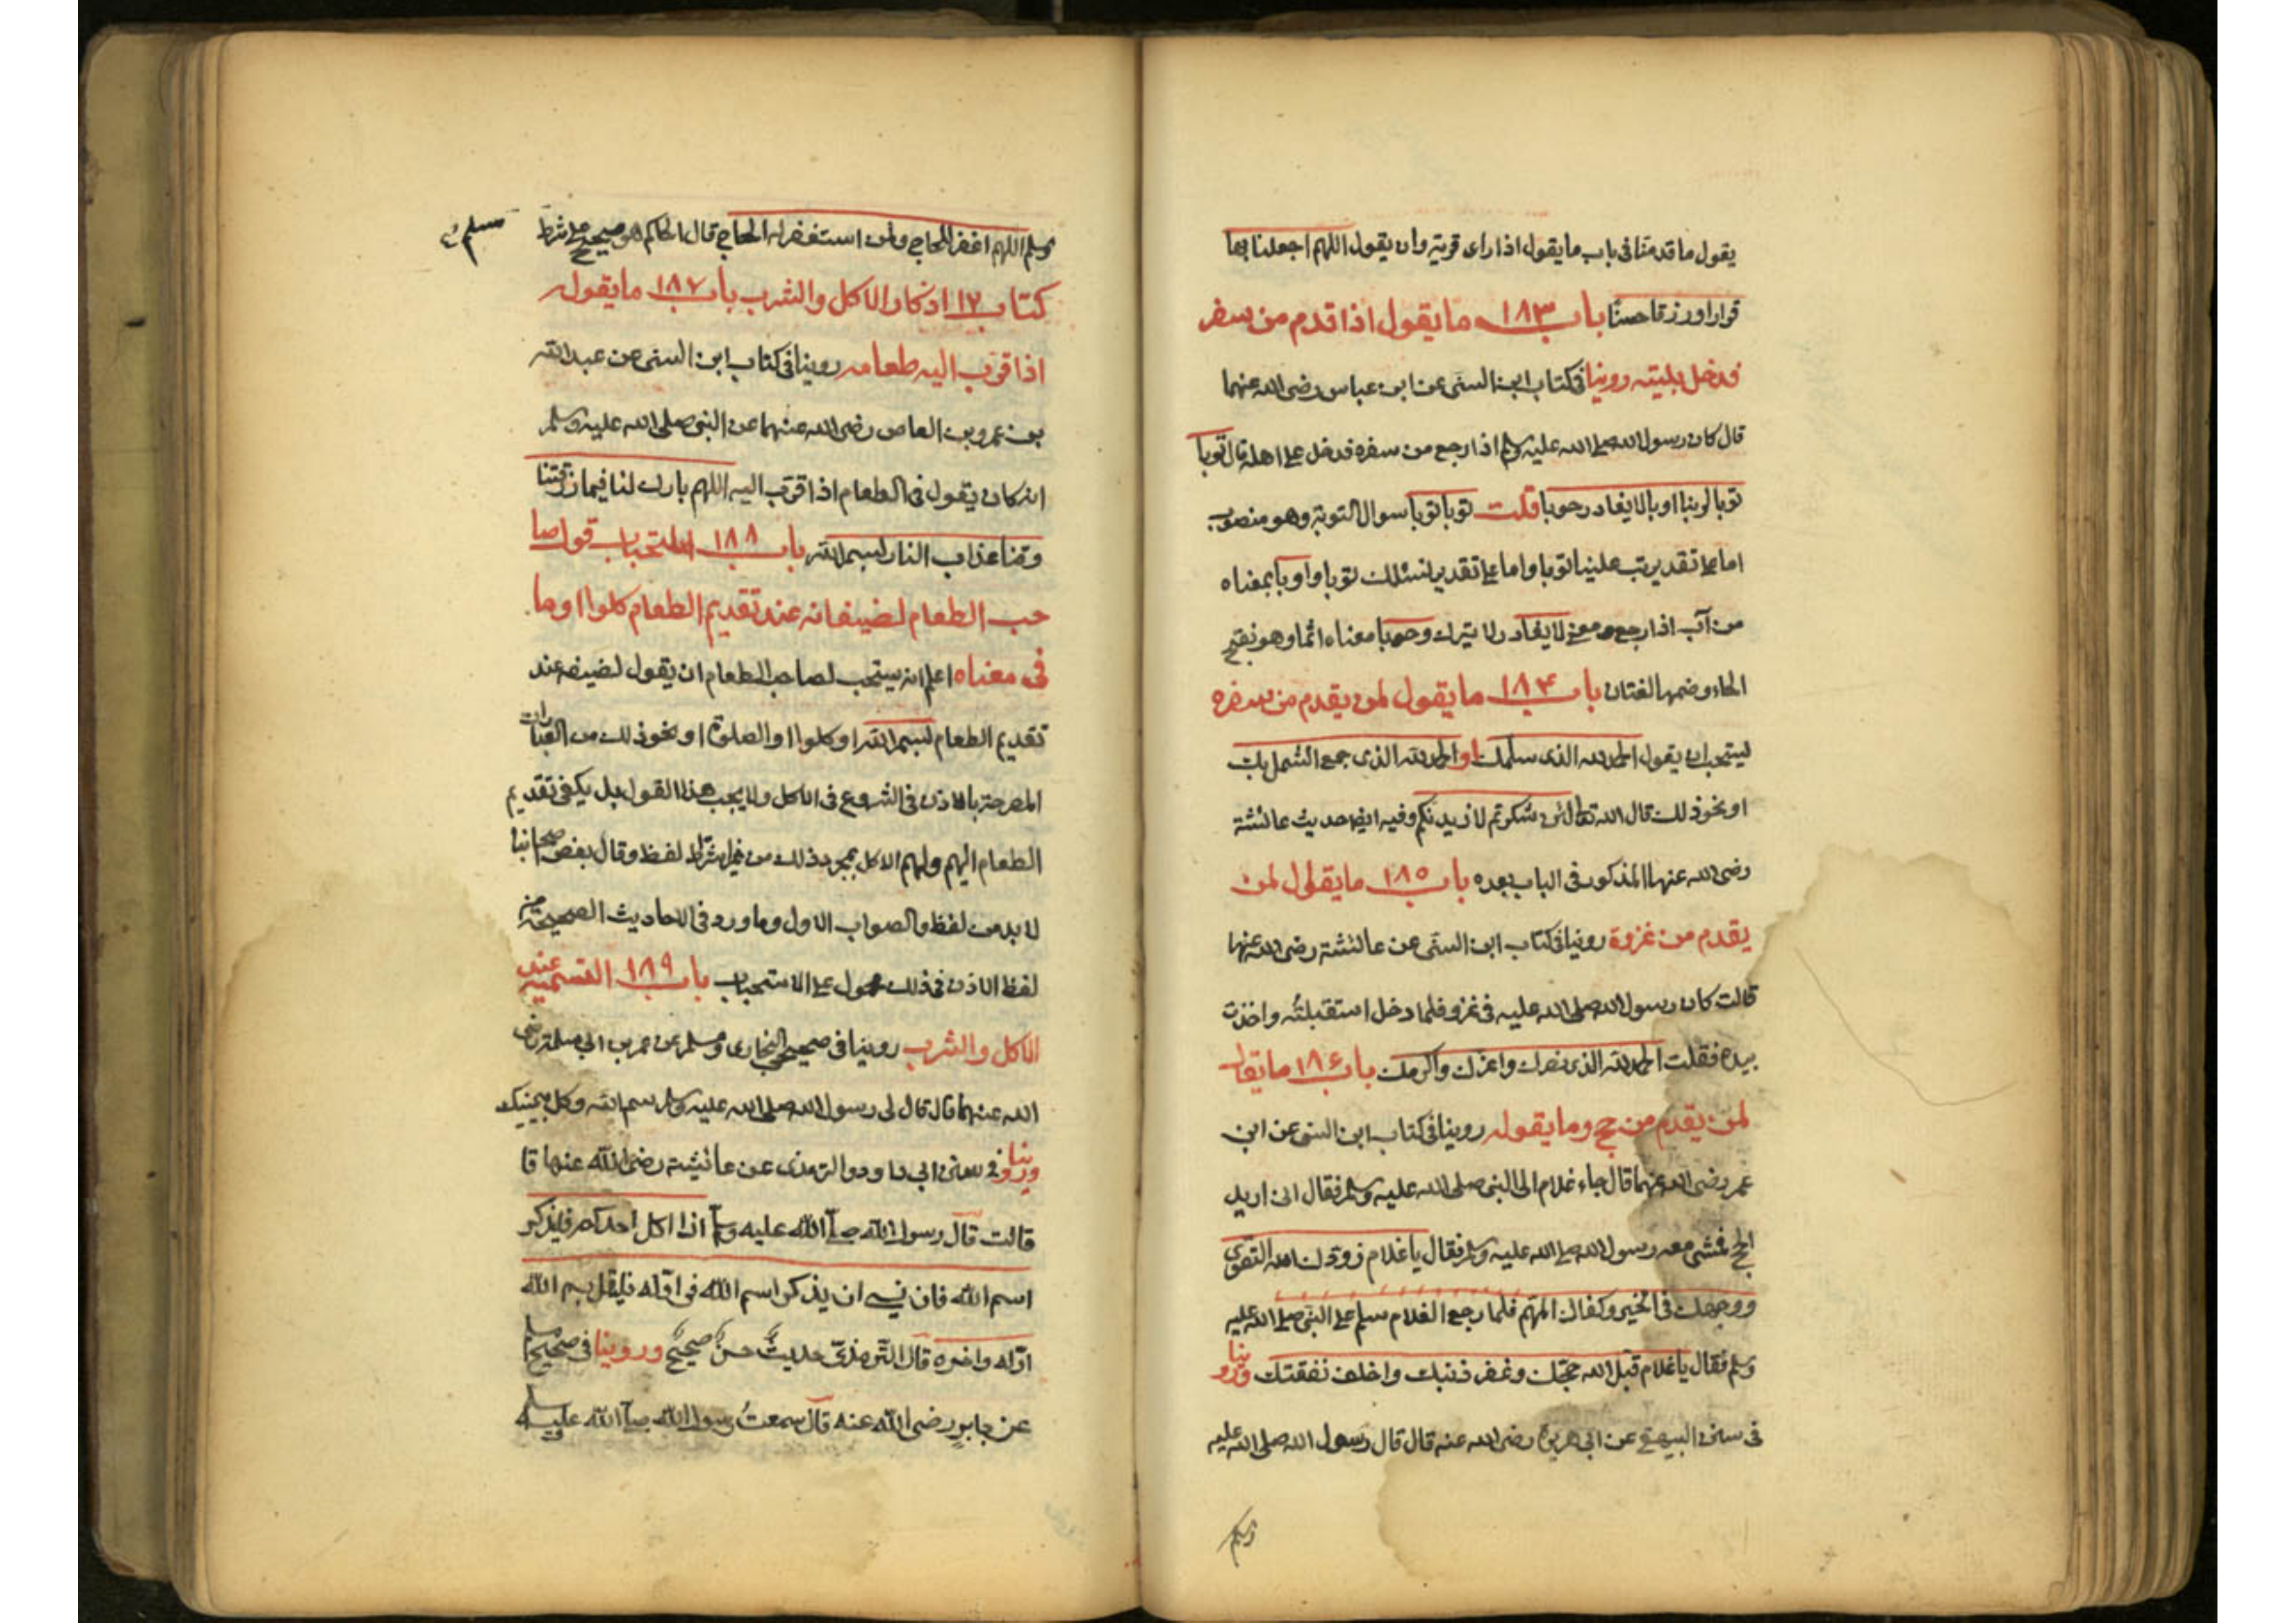 يقول ما قدمنا في باب ما يقول اذا راى قرية وان يقول اللهم اجعلنا بها
قرارا ورزقا حسنا باب ١٨٣ ما يقول اذا قدم من سفر
فدخل بليته روينا في كتاب ابن السنى عن ابن عباس رضى الله عنهما
قال كان رسول الله صلى الله عليه وسلم اذا رجع من سفره فدخل على اهله قال توبا
توبا لربنا اوبا لا يغادر حوبا قلت توبا توبا سوال التوبة وهو منصوب
اما على تقدير تب علينا توبا واما على تقدير نسئلك توبا واوبا بمعناه
من آب اذا رجع ومعنى لا يغادر لا يترك وحوبا معناه اثما وهو بفتح
الحاء وضمها لغتان باب ١٨۴ ما يقول لمن يقدم من سفره
يستحب ان يقول الحمد لله الذى سلمك او الحمد لله الذى جمع الشمل بك
او نحو ذلك قال الله تعالى لئن شكرتم لازيدنكم وفيه ايضا حديث عائشة
رضى الله عنها المذكور في الباب بعده باب ١٨٥ ما يقول لمن
يقدم من غزوة روينا في كتاب ابن السنى عن عائشة رضى الله عنها
قالت كان رسول الله صلى الله عليه في غزو فلما دخل استقبلته واخذت
بيده فقلت الحمد لله الذى نصرك واعزك واكرمك باب ١٨۶ ما يقال
لمن يقدم من حج وما يقوله روينا في كتاب ابن السنى عن ابن
عمر رضى الله عنهما قال جاء غلام الى النبى صلى الله عليه وسلم فقال انى اريد
الحج فمشى معه رسول الله صلى الله عليه وسلم فقال يا غلام زودك الله التقوى
ووجهك في الخير وكفاك المهم فلما رجع الغلام سلم على النبى صلى الله عليه
وسلم فقال يا غلام قبل الله حجتك وغفر ذنبك واخلف نفقتك وروينا
في سنن البيهقى عن ابى هريرة رضى الله عنه قال قال رسول الله صلى الله عليه
وسلم
وسلم اللهم اغفر للحاج ولمن استغفر له الحاج قال الحاكم هو صحيح على شرط
مسلم
كتاب ١٧ اذكار الاكل والشرب باب ١٨٧ ما يقول
اذا قرب اليه طعامه روينا في كتاب ابن السنى عن عبد الله
بن عمرو بن العاص رضى الله عنهما عن النبى صلى الله عليه وسلم
انه كان يقول في الطعام اذا قرب اليه اللهم بارك لنا فيما رزقتنا
وقنا عذاب النار بسم الله باب ١٨٨ استحباب قول صا
حب الطعام لضيفانه عند تقديم الطعام كلوا او ما
في معناه اعلم انه يستحب لصاحب الطعام ان يقول لضيفه عند
تقديم الطعام بسم الله او كلوا او الصلوة او نحو ذلك من العبارات
المصرحة بالاذن في الشروع في الاكل ولا يجب هذا القول بل يكفى تقديم
الطعام اليهم ولهم الاكل بمجرد ذلك من غير اشتراط لفظ وقال بعض اصحابنا
لا بد من لفظ والصواب الاول وما ورد في الاحاديث الصحيحة من
لفظ الاذن في ذلك محمول على الاستحباب باب ١٨٩ التسمية عند
الاكل والشرب روينا في صحيح البخارى ومسلم عن عمر بن ابى سلمة رضى
الله عنهما قال قال لى رسول الله صلى الله عليه وسلم سم الله وكل بيمينك
وروينا في سنن ابى داود والترمذى عن عائشة رضى الله عنها قا
قالت قال رسول الله صلى الله عليه وسلم اذا اكل احدكم فليذكر
اسم الله فان نسي ان يذكر اسم الله في اوله فليقل بسم الله
اوله واخره قال الترمذى حديث حسن صحيح وروينا في صحيح مسلم
عن جابر رضى الله عنه قال سمعت رسول الله صلى الله عليه وسلم